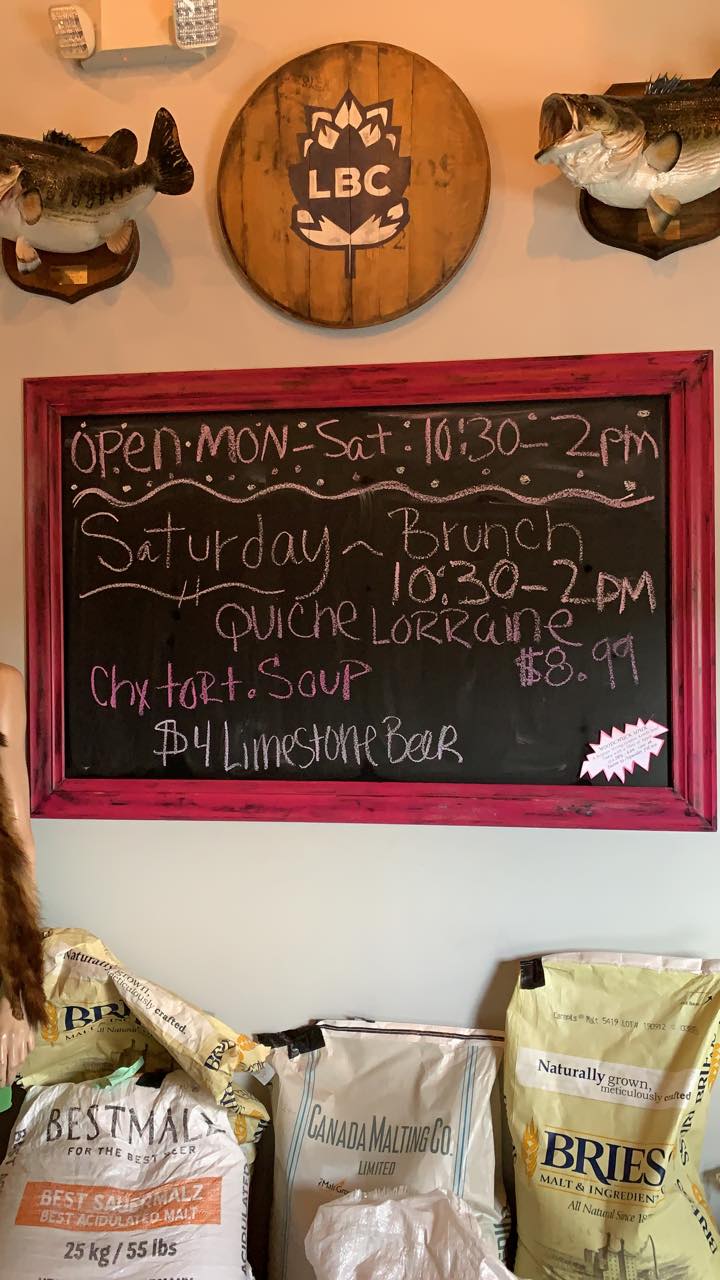 LBC
OPEN MON-Sat. 10:30-2pm
Saturday ~ Brunch
10:30-2PM
QUICHE LORRaine
$8.99
Chx torT. SOUP
$4 Limestone Beer
Naturally grown,
meticulously crafted.
BRI
MALT &
All Natural
BESTMALZ
FOR THE BEST BEER
BEST SAUERMALZ
BEST ACIDULATED MALT
25 kg / 55 lbs
ACIDULATED
CANADA MALTING CO.
LIMITED
Malt 5419 LOT#
Naturally grown,
meticulously crafted
BRIES
MALT & INGREDIENT
All Natural Since 18